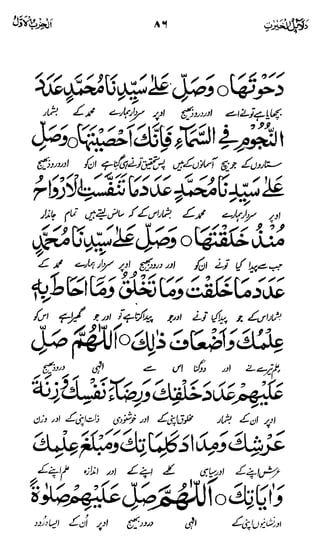 دلائل الخیرات ۸۶ الحزب الاول
دَحَوْتَهَا ۝ وَصَلِّ عَلٰى سَيِّدِنَا مُحَمَّدٍ عَدَدَ
بچھایا ہے تونے اسے اور درود بھیج اوپر سردار ہمارے محمد کے بشمار
النُّجُوْمِ فِي السَّمَآءِ فَاِنَّكَ اَحْصَيْتَهَا ۝ وَصَلِّ
ستاروں کے جو بیچ آسمانوں کے ہیں پس تحقیق تونے ہی گنا ہے ان کو اور درود بھیج
عَلٰى سَيِّدِنَا مُحَمَّدٍ عَدَدَ مَا تَنَفَّسَتِ الْاَرْوَاحُ
اوپر سردار ہمارے محمد کے بشمار اس کے کہ سانس لیتے ہیں تمام جاندار
مُنْذُ خَلَقْتَهَا ۝ وَصَلِّ عَلٰى سَيِّدِنَا مُحَمَّدٍ
جب سے پیدا کیا تونے ان کو اور درود بھیج اوپر سردار ہمارے محمد کے
عَدَدَ مَا خَلَقْتَ وَمَا تَخْلُقُ وَمَا اَحَاطَ بِهٖ
بشمار اس کے جو پیدا کیا تونے اور جو پیدا کرتا ہے تو اور جو گھیرا ہے اس کو
عِلْمُكَ وَاَضْعَافَ ذٰلِكَ ۝ اَللّٰهُمَّ صَلِّ
علم تیرے نے اور دوگنا اس سے الٰہی درود بھیج
عَلَيْهِمْ عَدَدَ خَلْقِكَ وَرِضَآءَ نَفْسِكَ وَزِنَةَ
اوپر ان کے بشمار مخلوق اپنی کے اور خوشنودی ذات اپنی کے اور وزن
عَرْشِكَ وَمِدَادَ كَلِمَاتِكَ وَمَبْلَغَ عِلْمِكَ
عرش اپنے کے اور سیاہی کلمے اپنے کے اور اندازہ علم اپنے کے
وَاٰيَاتِكَ ۝ اَللّٰهُمَّ صَلِّ عَلَيْهِمْ صَلٰوةً
اور نشانیوں اپنی کے الٰہی درود بھیج اوپر ان کے ایسا درود